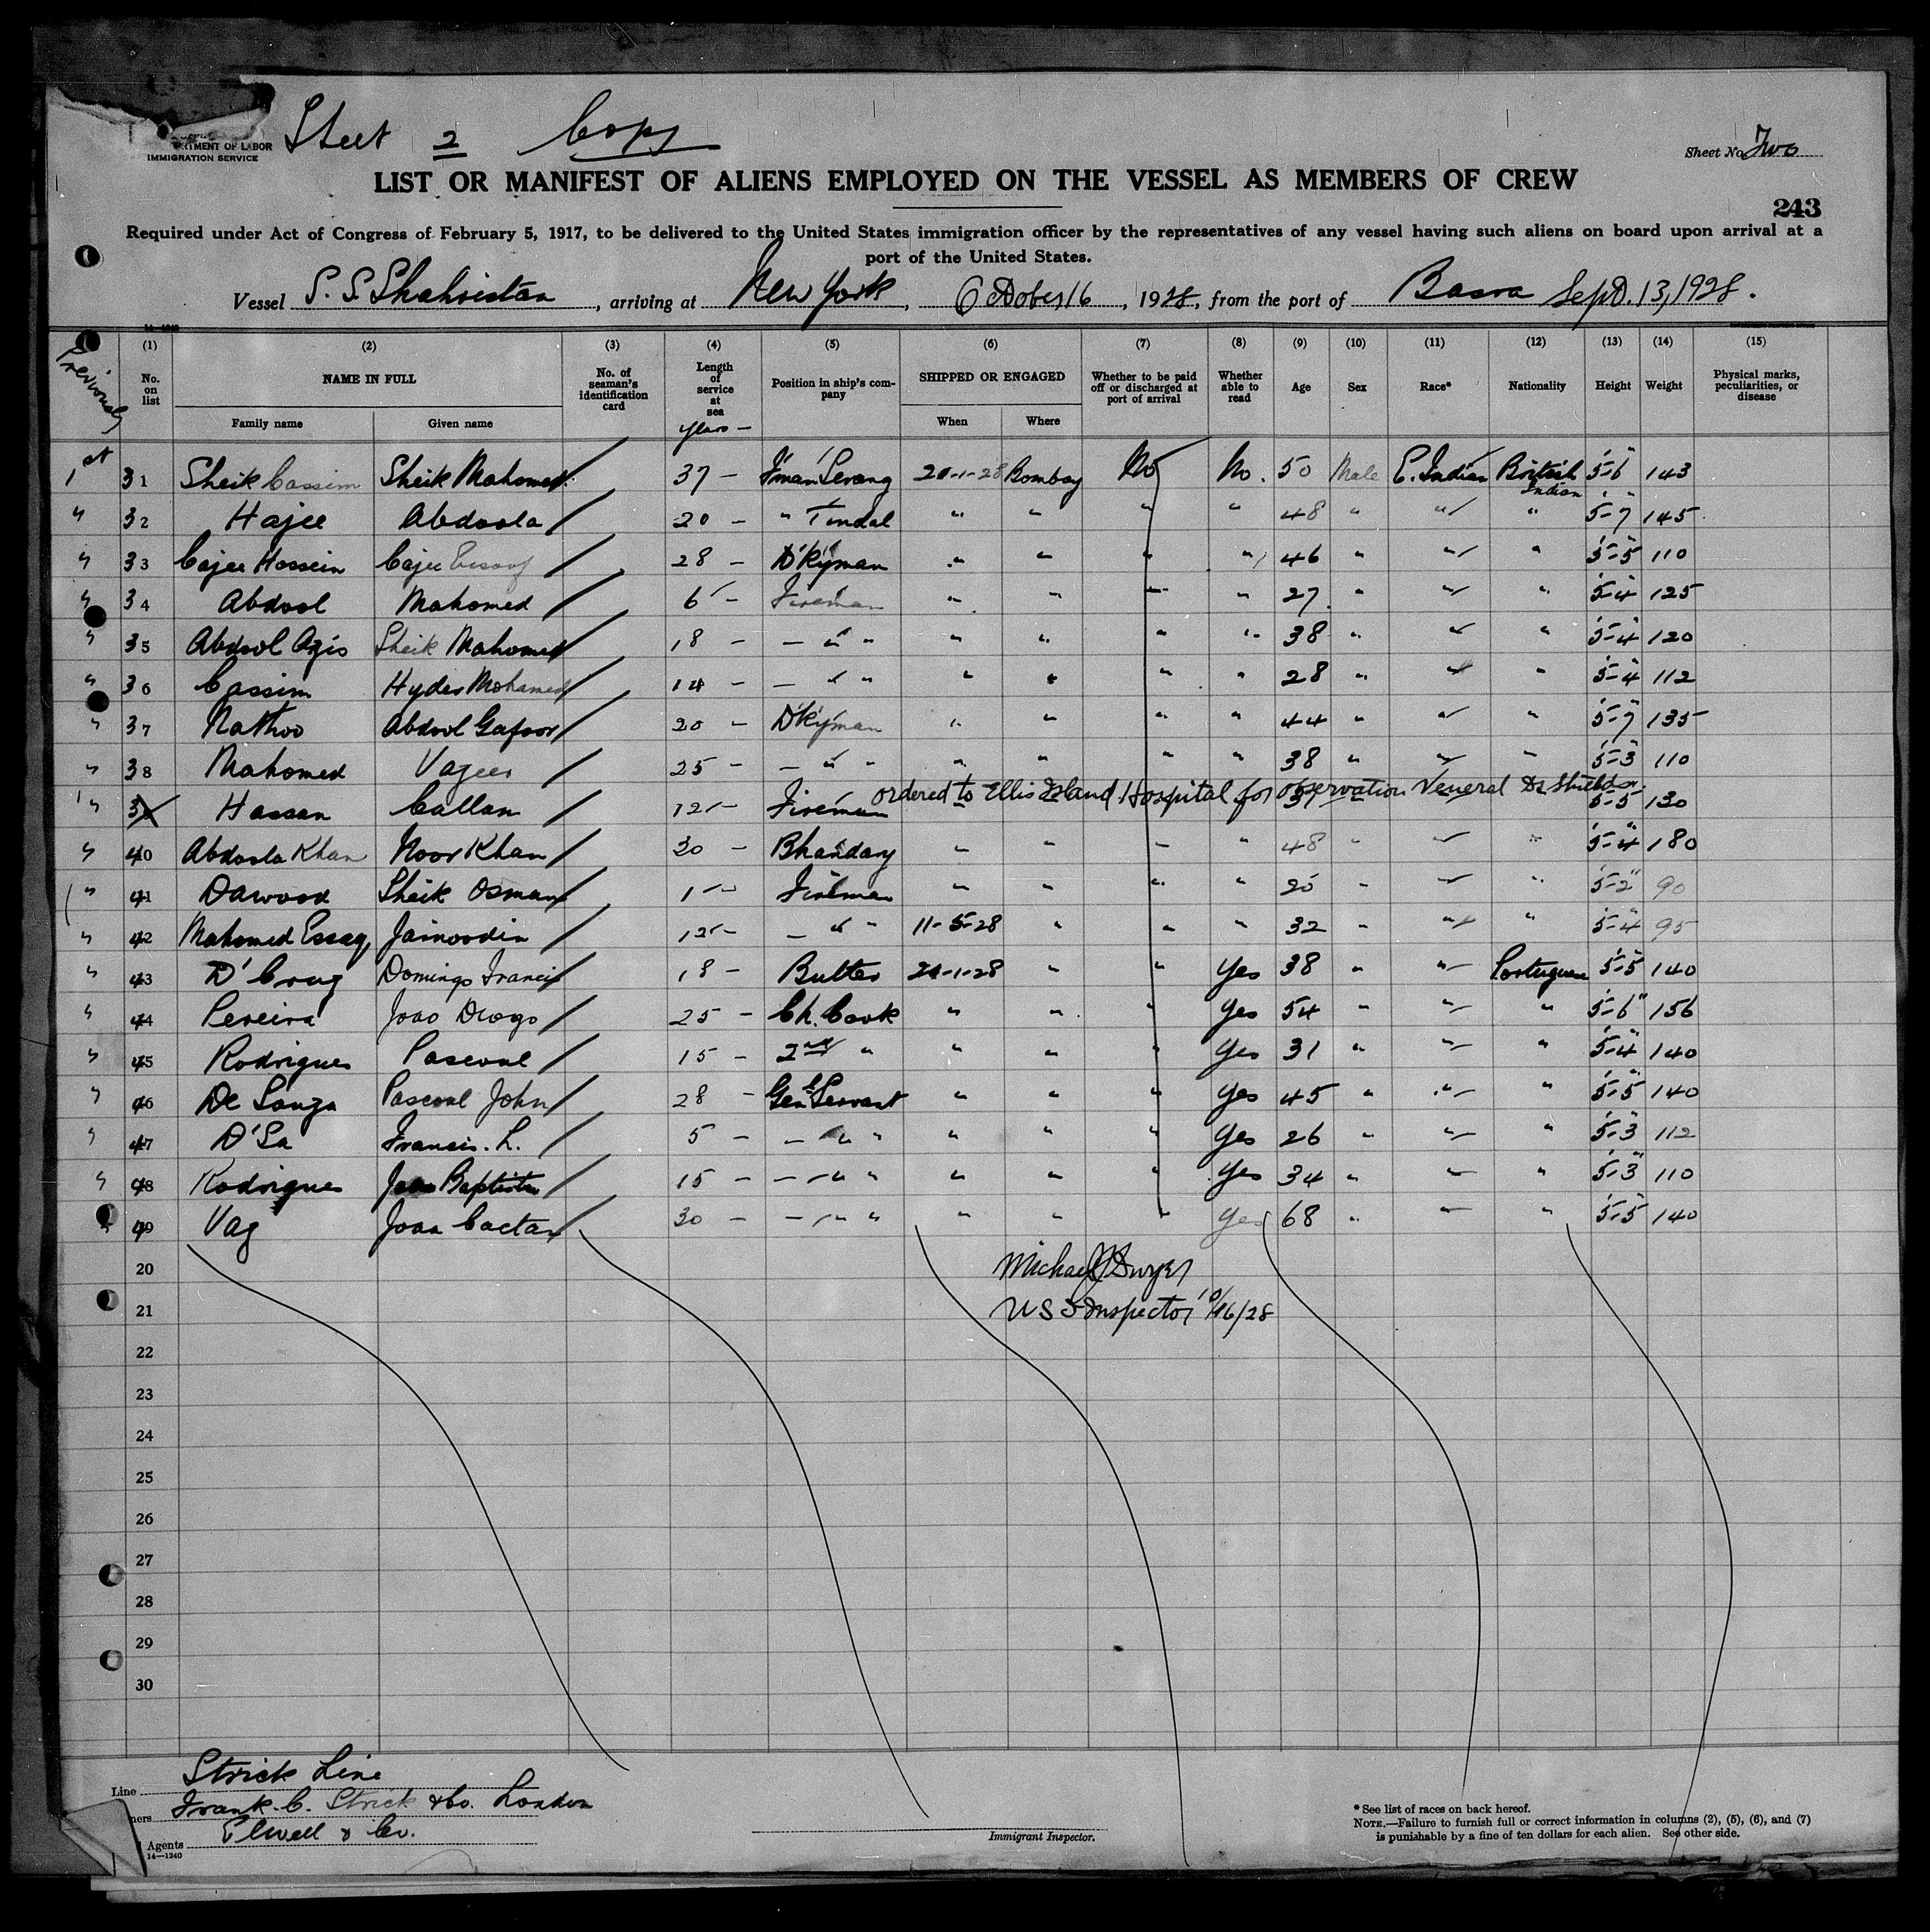 Sheet 2 Copy
DEPARTMENT OF LABOR
IMMIGRATION SERVICE
Sheet No. Two
LIST OR MANIFEST OF ALIENS EMPLOYED ON THE VESSEL AS MEMBERS OF CREW
243
Required under Act of Congress of February 5, 1917, to be delivered to the United States immigration officer by the representatives of any vessel having such aliens on board upon arrival at a
port of the United States.
Vessel S.S. Shahristan, arriving at New York, October 16, 1928, from the port of Basra Sept. 13, 1928.
Previously (1) No. on list (2) NAME IN FULL Family name Given name (3) No. of seaman's identification card (4) Length of service at sea years — (5) Position in ship's company (6) SHIPPED OR ENGAGED When Where (7) Whether to be paid off or discharged at port of arrival (8) Whether able to read (9) Age (10) Sex (11) Race* (12) Nationality (13) Height (14) Weight (15) Physical marks, peculiarities, or disease
1st 31 Sheik Cassim Sheik Mahomed 37 — F'man Serang 20-1-28 Bombay No No. 50 Male E. Indian British Indian 5-6 143
" 32 Hajee Abdoola 20 — " Tindal " " " " 48 " " " 5-7 145
" 33 Cajee Hossein Cajee Essoof 28 — D'Kyman " " " " 46 " " " 5-5 110
" 34 Abdool Mahomed 6 — Fireman " " " " 27 " " " 5-4 125
" 35 Abdool Azis Sheik Mahomed 18 — — " " " " " " 38 " " " 5-4 120
" 36 Cassim Hyder Mohamed 14 — — " " " " " " 28 " " " 5-4 112
" 37 Nathoo Abdool Gafoor 20 — D'Kyman " " " " 44 " " " 5-7 135
" 38 Mahomed Vazeer 25 — — " " " " " " 38 " " " 5-3 110
" 39 Hassan Callan 12 — Fireman ordered to Ellis Island Hospital for observation Veneral Dr Shields 37 5-5 130
" 40 Abdoola Khan Noor Khan 30 — Bhandary " " " " 48 " " " 5-4 180
" 41 Dawood Sheik Osman 1 — Fireman " " " " 20 " " " 5-2 90
" 42 Mahomed Essaq Jainoodin 12 — — " " 11-5-28 " " " 32 " " " 5-4 95
" 43 D'Cruz Domingo Francis 18 — Butler 20-1-28 " " Yes 38 " " Portuguese 5-5 140
" 44 Pereira Joao Diogo 25 — Ch. Cook " " " Yes 54 " " " 5-6 156
" 45 Rodrigues Pascoal 15 — 2nd " " " " Yes 31 " " " 5-4 140
" 46 De Souza Pascoal John 28 — Genl Servant " " " Yes 45 " " " 5-5 140
" 47 D'Sa Francis. L. 5 — — " " " " " Yes 26 " " " 5-3 112
" 48 Rodrigues Joao Baptista 15 — — " " " " " Yes 34 " " " 5-3 110
" 49 Vaz Joao Caetan 30 — — " " " " " Yes 68 " " " 5-5 140
20 Michael J Dwyer
21 U S I Inspector 10/16/28
22
23
24
25
26
27
28
29
30
Line Strick Line
Owners Frank. C. Strick & Co. London
Agents Elwell & Co.
14—1240
Immigrant Inspector.
* See list of races on back hereof.
NOTE.—Failure to furnish full or correct information in columns (2), (5), (6), and (7)
is punishable by a fine of ten dollars for each alien. See other side.